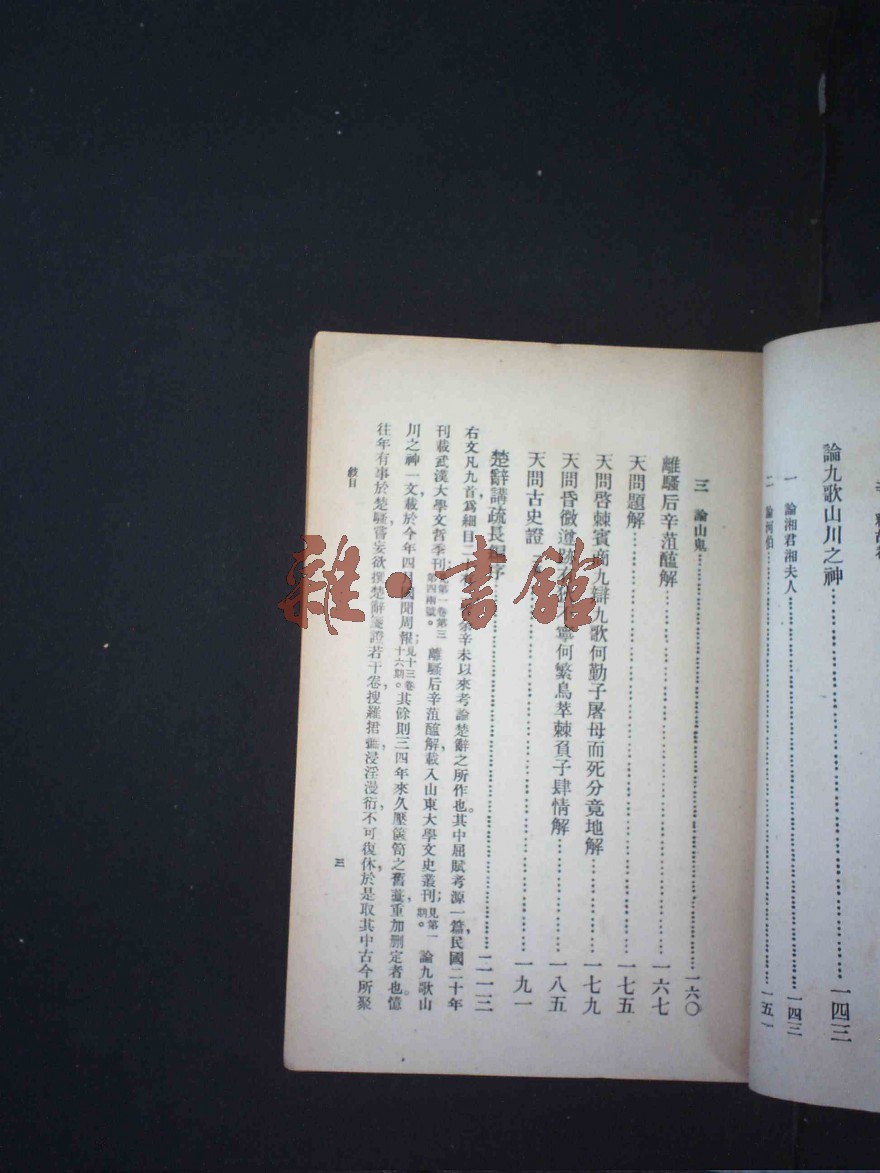 論九歌山川之神……一四三
一 論湘君湘夫人……一四三
二 論河伯……一五一
三 論山鬼……一六〇
離騷后辛菹醢解……一六七
天問題解……一七五
天問啓棘賓商九辯九歌何勤子屠母而死分竟地解……一七九
天問昏微遵跡 寧何繁鳥萃棘負子肆情解……一八五
天問古史證……一九一
楚辭講疏長編序……二一三
右文凡九首爲細目二十 余辛未以來考論楚辭之所作也。其中屈賦考源一篇,民國二十年
刊載武漢大學文哲季刊,見第一卷第三第四兩號。離騷后辛菹醢解,載入山東大學文史叢刊;見第一期。論九歌山
川之神一文載於今年四月國聞周報,見十三卷十六期。其餘則三四年來久壓篋笥之舊藁,重加刪定者也。憶
往年有事於楚騷,嘗妄欲撰楚辭箋證若干卷,搜羅捃 浸淫漫衍,不可復休,於是取其中古今所聚
敍目
三
雜·書館